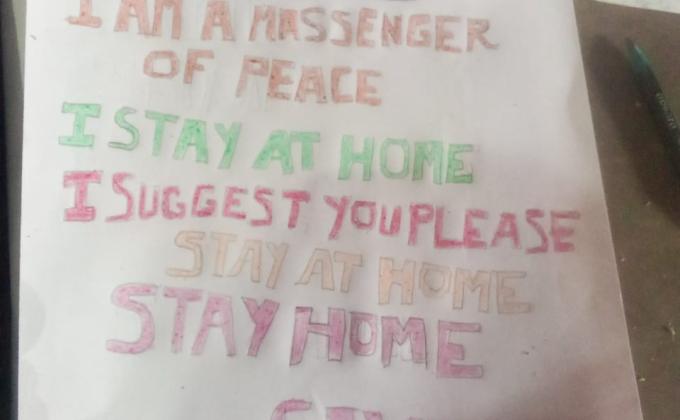 I AM A MASSENGER
OF PEACE
I STAY AT HOME
I SUGGEST YOU PLEASE
STAY AT HOME
STAY HOME